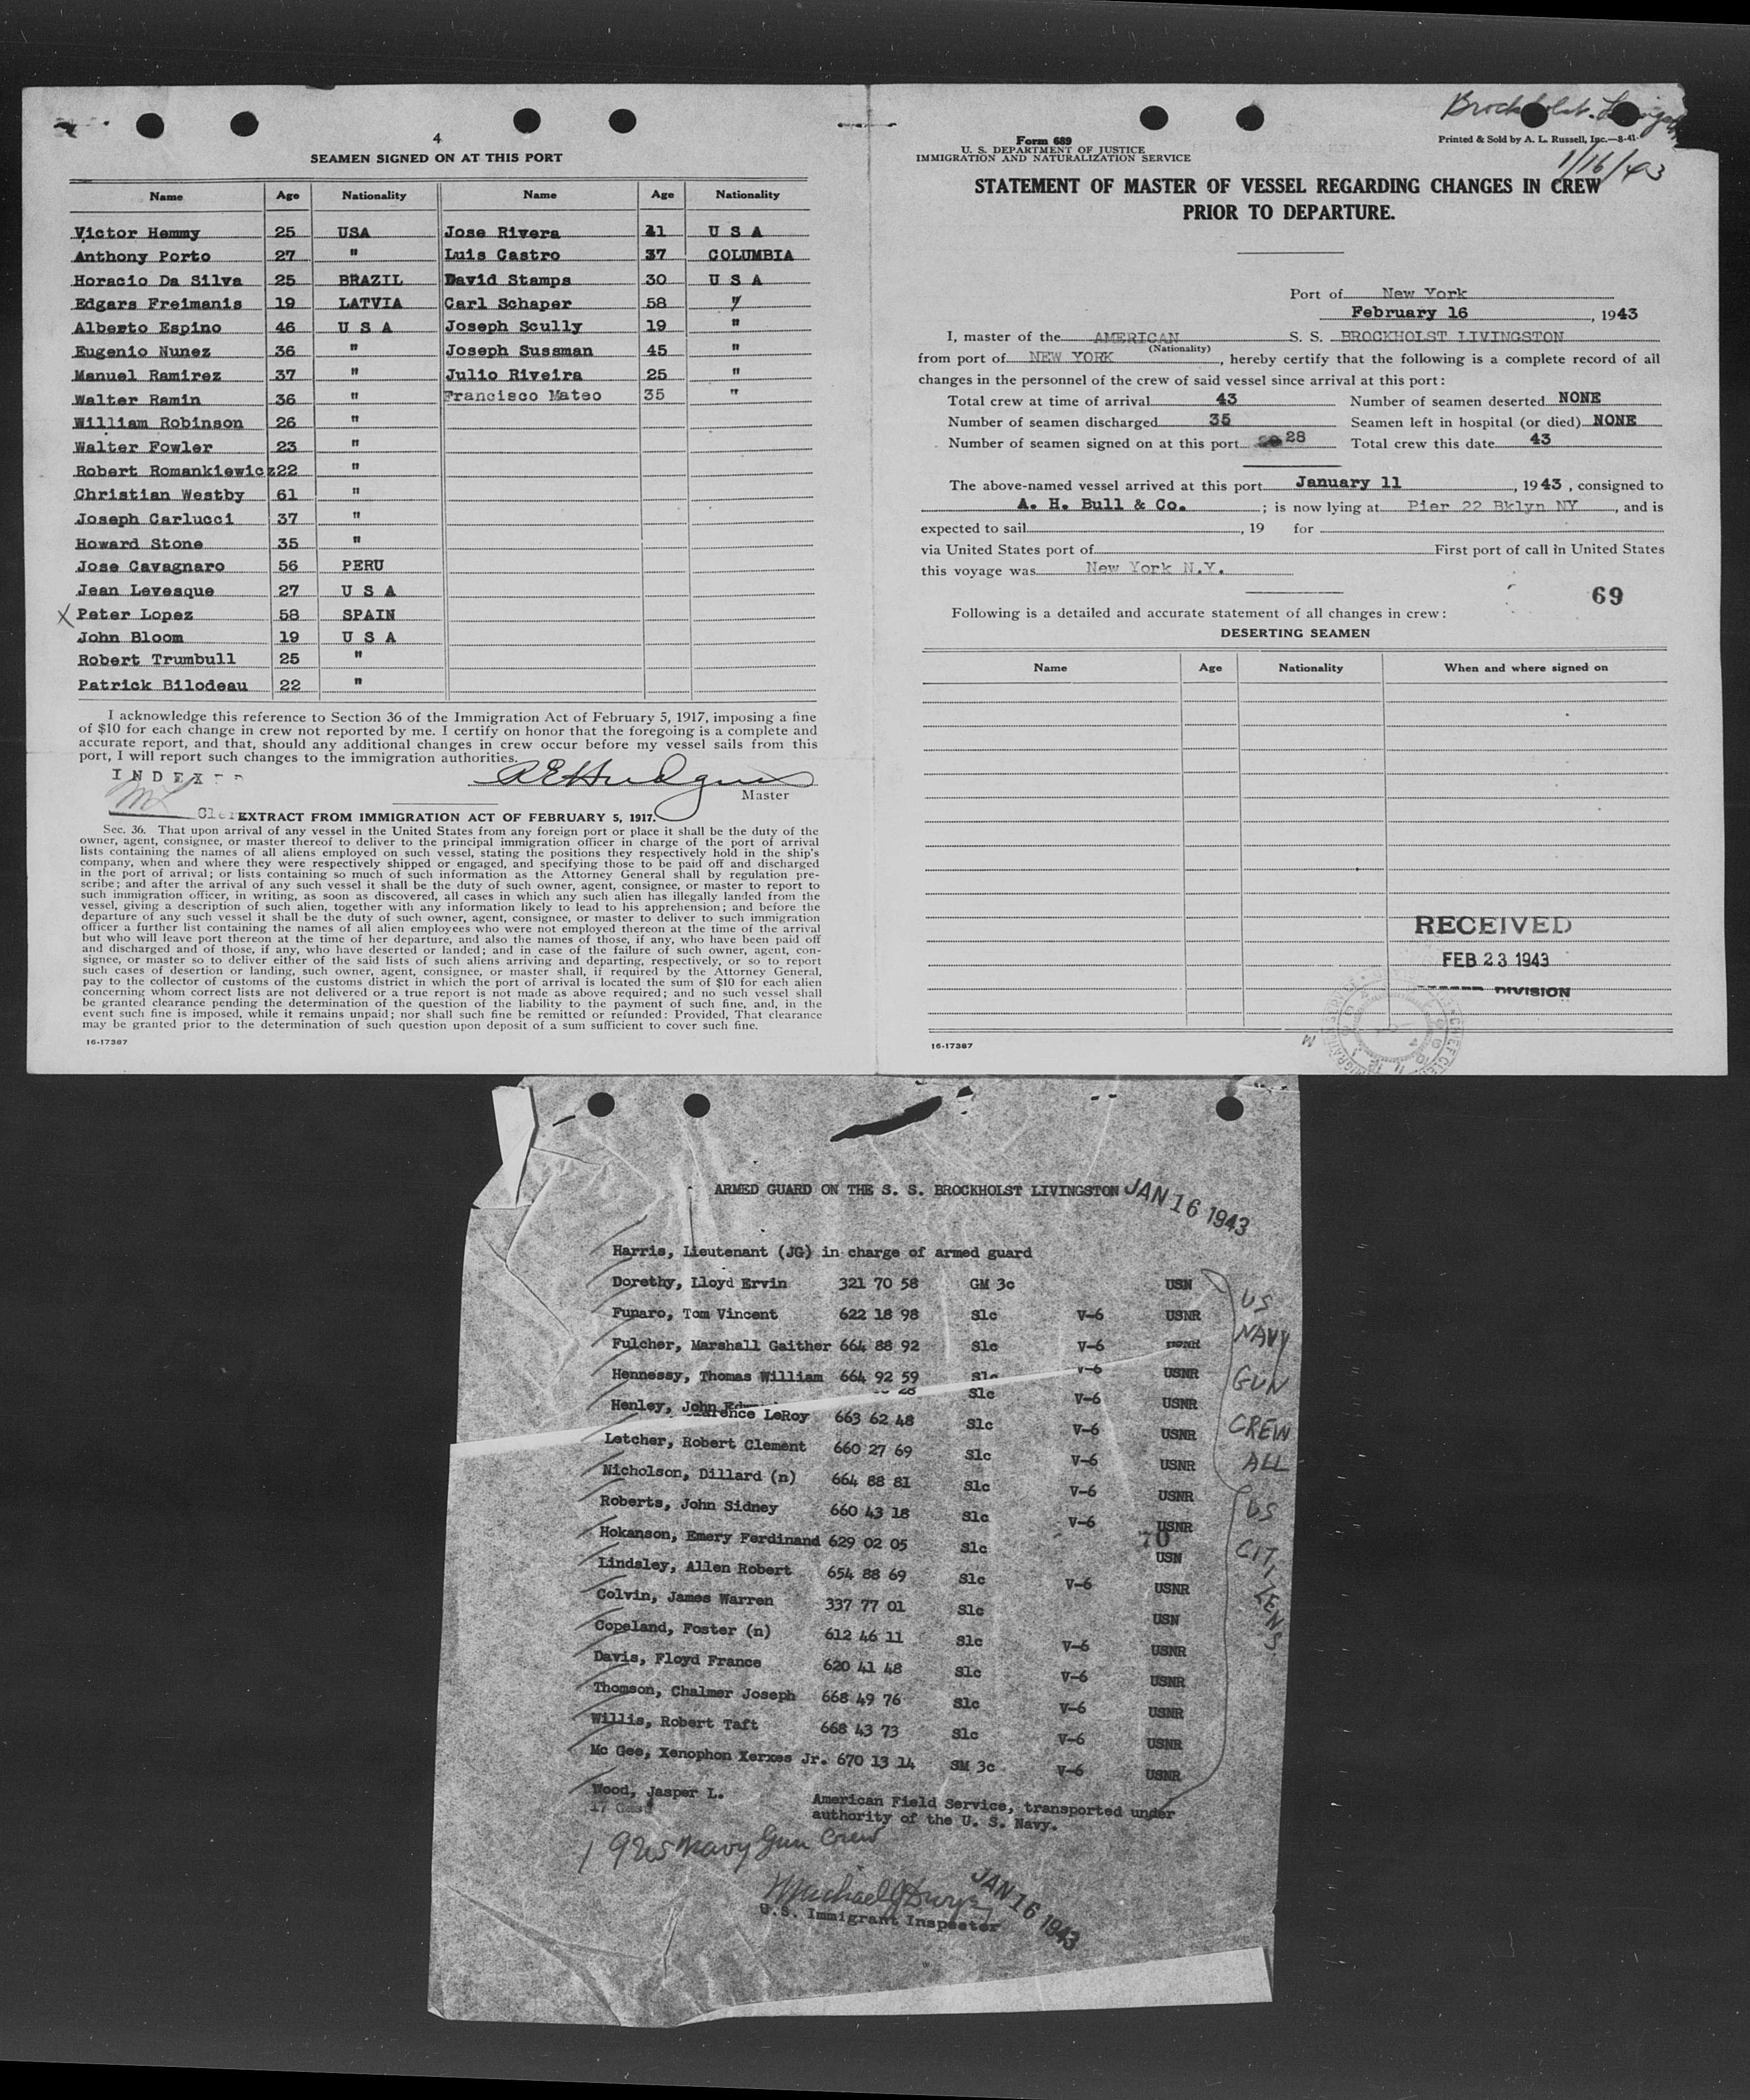 4
SEAMEN SIGNED ON AT THIS PORT
Name Age Nationality Name Age Nationality
Victor Hemmy 25 USA Jose Rivera 41 U S A
Anthony Porto 27 " Luis Castro 37 COLUMBIA
Horacio Da Silva 25 BRAZIL David Stamps 30 U S A
Edgars Freimanis 19 LATVIA Carl Schaper 58 "
Alberto Espino 46 U S A Joseph Scully 19 "
Eugenio Nunez 36 " Joseph Sussman 45 "
Manuel Ramirez 37 " Julio Riveira 25 "
Walter Ramin 36 " Francisco Mateo 35 "
William Robinson 26 "
Walter Fowler 23 "
Robert Romankiewicz 22 "
Christian Westby 61 "
Joseph Carlucci 37 "
Howard Stone 35 "
Jose Cavagnaro 56 PERU
Jean Levesque 27 U S A
X Peter Lopez 58 SPAIN
John Bloom 19 U S A
Robert Trumbull 25 "
Patrick Bilodeau 22 "
I acknowledge this reference to Section 36 of the Immigration Act of February 5, 1917, imposing a fine
of $10 for each change in crew not reported by me. I certify on honor that the foregoing is a complete and
accurate report, and that, should any additional changes in crew occur before my vessel sails from this
port, I will report such changes to the immigration authorities.
INDEX
A E Hudgins
Master
EXTRACT FROM IMMIGRATION ACT OF FEBRUARY 5, 1917.
Sec. 36. That upon arrival of any vessel in the United States from any foreign port or place it shall be the duty of the
owner, agent, consignee, or master thereof to deliver to the principal immigration officer in charge of the port of arrival
lists containing the names of all aliens employed on such vessel, stating the positions they respectively hold in the ship's
company, when and where they were respectively shipped or engaged, and specifying those to be paid off and discharged
in the port of arrival; or lists containing so much of such information as the Attorney General shall by regulation pre-
scribe; and after the arrival of any such vessel it shall be the duty of such owner, agent, consignee, or master to report to
such immigration officer, in writing, as soon as discovered, all cases in which any such alien has illegally landed from the
vessel, giving a description of such alien, together with any information likely to lead to his apprehension; and before the
departure of any such vessel it shall be the duty of such owner, agent, consignee, or master to deliver to such immigration
officer a further list containing the names of all alien employees who were not employed thereon at the time of the arrival
but who will leave port thereon at the time of her departure, and also the names of those, if any, who have been paid off
and discharged and of those, if any, who have deserted or landed; and in case of the failure of such owner, agent, con-
signee, or master so to deliver either of the said lists of such aliens arriving and departing, respectively, or so to report
such cases of desertion or landing, such owner, agent, consignee, or master shall, if required by the Attorney General,
pay to the collector of customs of the customs district in which the port of arrival is located the sum of $10 for each alien
concerning whom correct lists are not delivered or a true report is not made as above required; and no such vessel shall
be granted clearance pending the determination of the question of the liability to the payment of such fine, and, in the
event such fine is imposed, while it remains unpaid; nor shall such fine be remitted or refunded: Provided, That clearance
may be granted prior to the determination of such question upon deposit of a sum sufficient to cover such fine.
16-17387
Brockholst Livingston
1/16/43
Form 689
U. S. DEPARTMENT OF JUSTICE
IMMIGRATION AND NATURALIZATION SERVICE
Printed & Sold by A. L. Russell, Inc.—8-41
STATEMENT OF MASTER OF VESSEL REGARDING CHANGES IN CREW
PRIOR TO DEPARTURE.
Port of New York
February 16, 1943
I, master of the AMERICAN S. S. BROCKHOLST LIVINGSTON
(Nationality)
from port of NEW YORK, hereby certify that the following is a complete record of all
changes in the personnel of the crew of said vessel since arrival at this port:
Total crew at time of arrival 43 Number of seamen deserted NONE
Number of seamen discharged 35 Seamen left in hospital (or died) NONE
Number of seamen signed on at this port 28 Total crew this date 43
The above-named vessel arrived at this port January 11, 1943, consigned to
A. H. Bull & Co. ; is now lying at Pier 22 Bklyn NY, and is
expected to sail , 19 for
via United States port of First port of call in United States
this voyage was New York N.Y.
69
Following is a detailed and accurate statement of all changes in crew:
DESERTING SEAMEN
Name Age Nationality When and where signed on
RECEIVED
FEB 23 1943
DIVISION
16-17387
ARMED GUARD ON THE S. S. BROCKHOLST LIVINGSTON JAN 16 1943
Harris, Lieutenant (JG) in charge of armed guard
Dorethy, Lloyd Ervin 321 70 58 GM 3c USN
Funaro, Tom Vincent 622 18 98 S1c V-6 USNR
Fulcher, Marshall Gaither 664 88 92 S1c V-6 USNR
Hennessy, Thomas William 664 92 59 S1c V-6 USNR
Henley, John 28 S1c V-6 USNR
LeRoy 663 62 48 S1c V-6 USNR
Letcher, Robert Clement 660 27 69 S1c V-6 USNR
Nicholson, Dillard (n) 664 88 81 S1c V-6 USNR
Roberts, John Sidney 660 43 18 S1c V-6 USNR
70
Hokanson, Emery Ferdinand 629 02 05 S1c USN
Lindsley, Allen Robert 654 88 69 S1c V-6 USNR
Colvin, James Warren 337 77 01 S1c USN
Copeland, Foster (n) 612 46 11 S1c V-6 USNR
Davis, Floyd France 620 41 48 S1c V-6 USNR
Thomson, Chalmer Joseph 668 49 76 S1c V-6 USNR
Willis, Robert Taft 668 43 73 S1c V-6 USNR
Mc Gee, Xenophon Xerxes Jr. 670 13 14 SM 3c V-6 USNR
US
NAVY
GUN
CREW
ALL
US
CITIZENS
Wood, Jasper L. American Field Service, transported under
authority of the U. S. Navy.
19 US Navy Gun Crew
JAN 16 1943
U.S. Immigrant Inspector